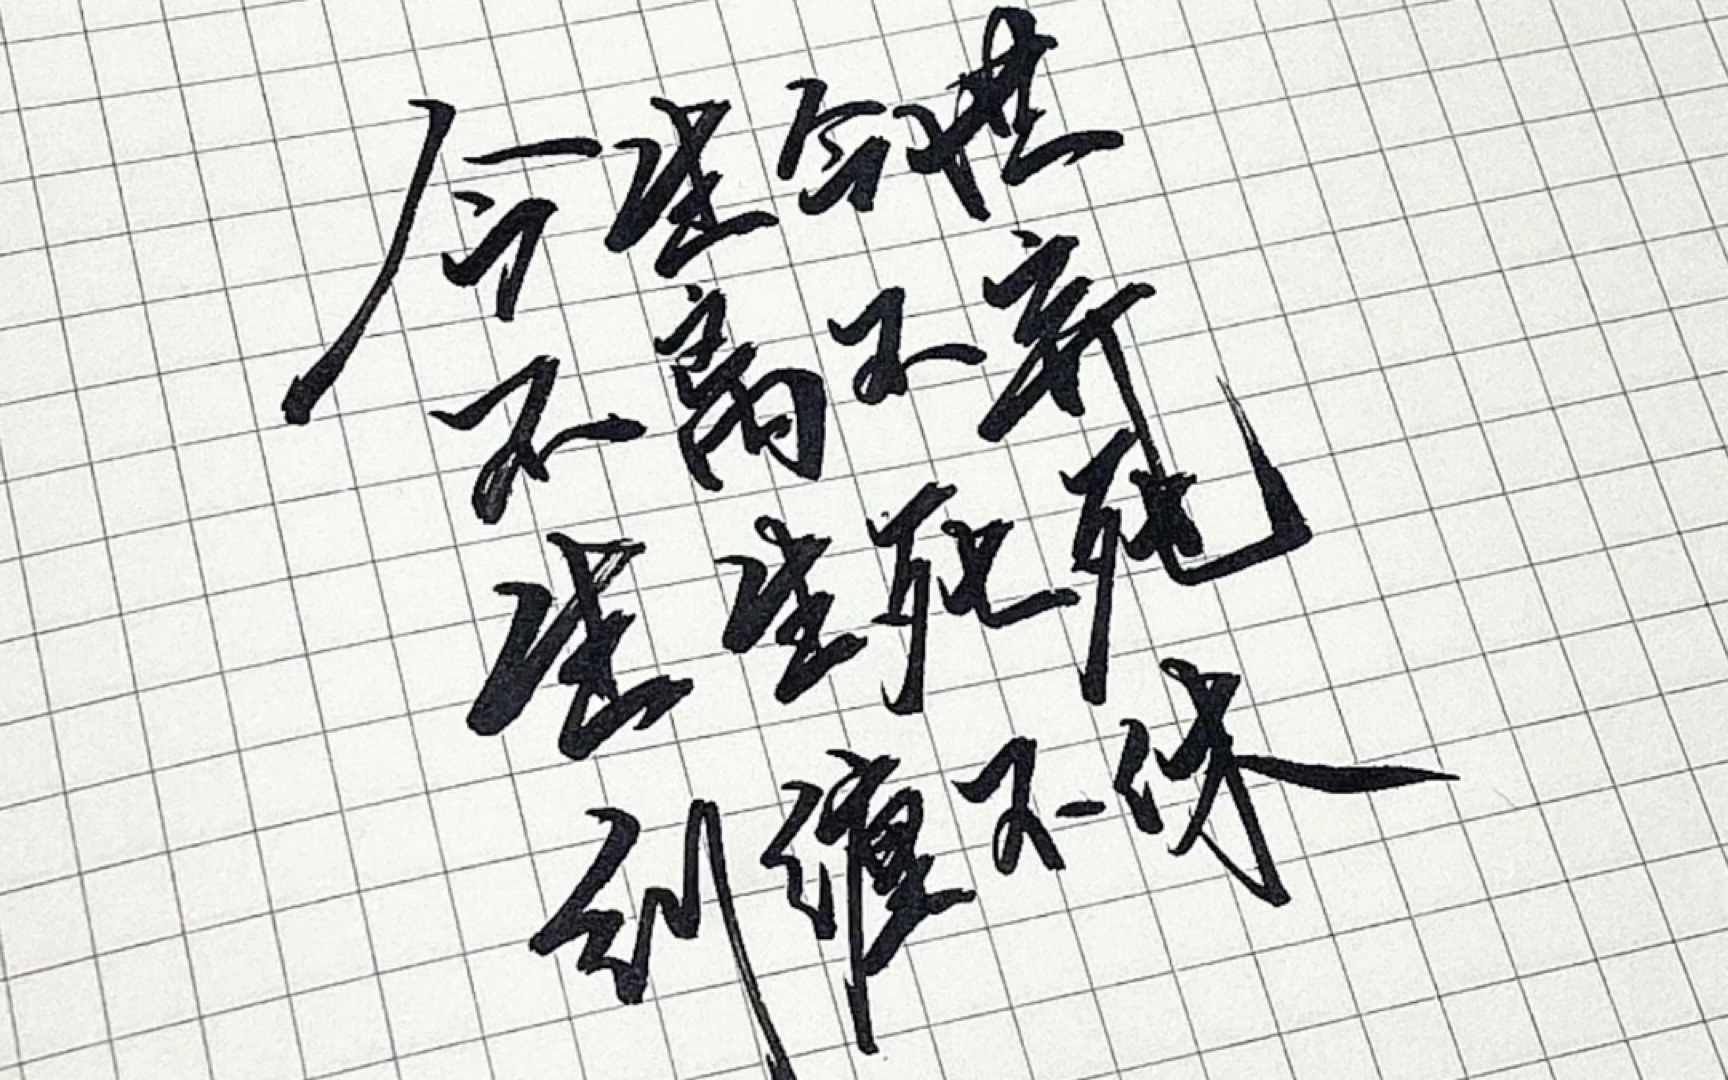 今生今世
不离不弃
生生死死
纠缠不休